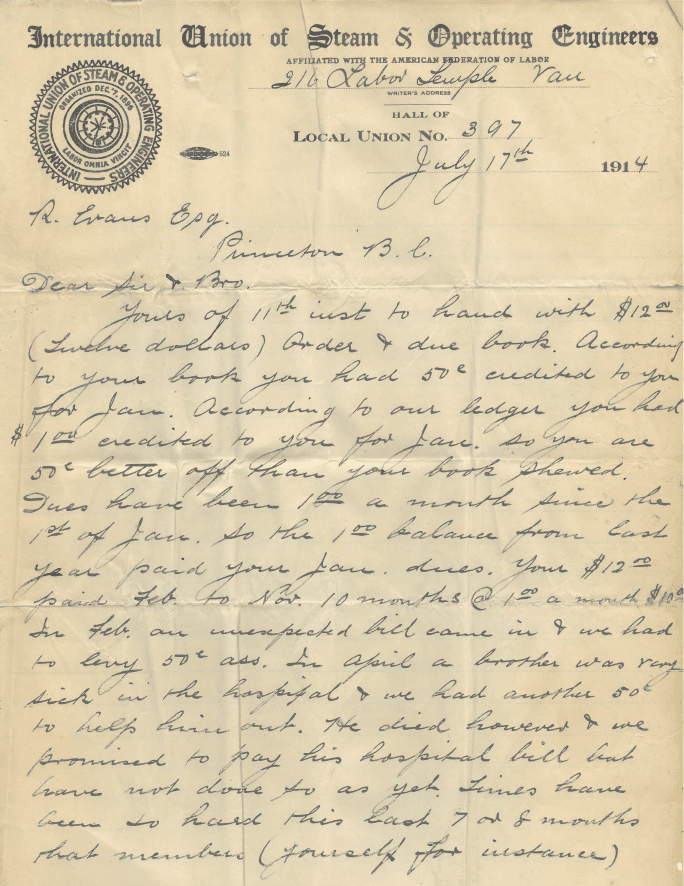 International Union of Steam & Operating Engineers
AFFILIATED WITH THE AMERICAN FEDERATION OF LABOR
216 Labor Temple Van
WRITER'S ADDRESS
HALL OF
LOCAL UNION NO. 397
July 17th 1914
INTERNATIONAL UNION OF STEAM & OPERATING ENGINEERS
ORGANIZED DEC. 7, 1896
LABOR OMNIA VINCIT
524
R. Evans Esq.
Princeton B.C.
Dear Sir & Bro.
Yours of 11th inst to hand with $12.00
(Twelve dollars) Order & due book. According
to your book you had 50¢ credited to you
for Jan. According to our ledger you had
$1.00 credited to you for Jan. so you are
50¢ better off than your book shewed.
Dues have been 1.00 a month since the
1st of Jan. so the 1.00 balance from last
year paid your Jan. dues. Your $12.00
paid Feb. to Nov. 10 months @ 1.00 a month $10.00
In Feb. an unexpected bill came in & we had
to levy 50¢ ass. In April a brother was very
sick in the hospital & we had another 50¢
to help him out. He died however & we
promised to pay his hospital bill but
have not done so as yet. Times have
been so hard this last 7 or 8 months
that members (yourself for instance)